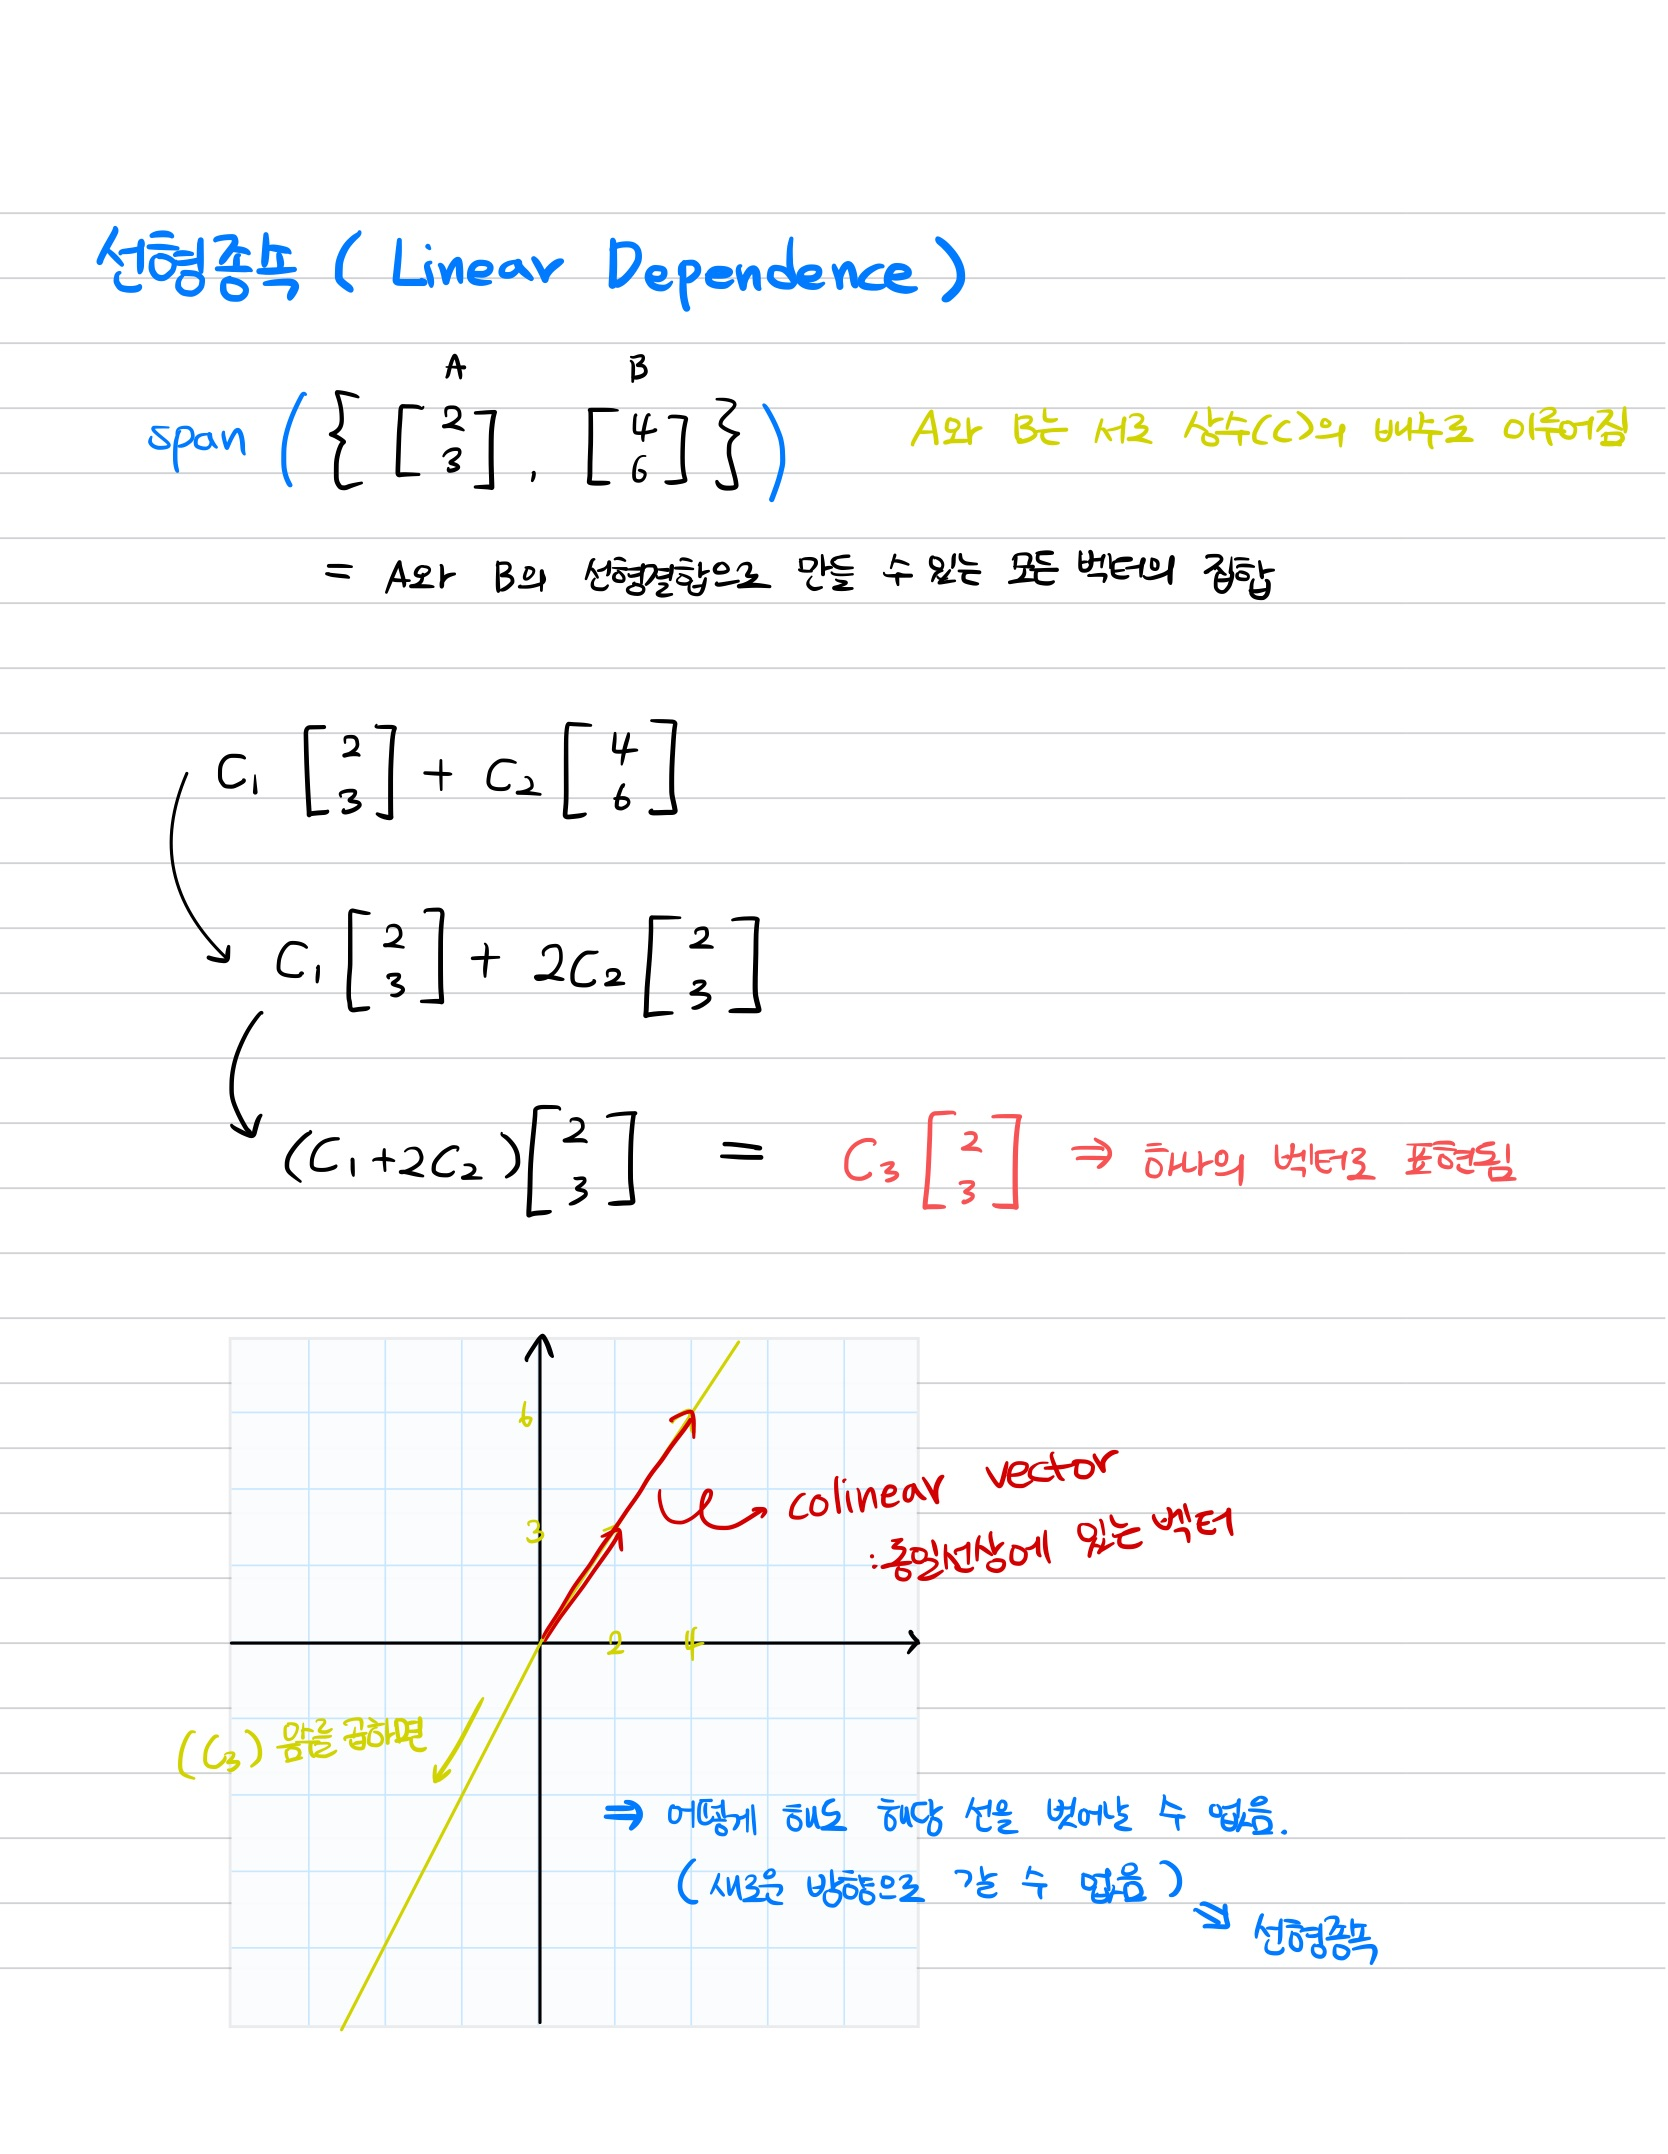 선형종속 (Linear Dependence)
A B
span ({[2 3], [4 6]}) A와 B는 서로 상수(C)의 배수로 이루어짐
= A와 B의 선형결합으로 만들 수 있는 모든 벡터의 집합
C₁ [2 3] + C₂ [4 6]
C₁ [2 3] + 2C₂ [2 3]
(C₁+2C₂) [2 3] = C₃ [2 3] ⇒ 하나의 벡터로 표현됨
6
colinear vector
3
:동일선상에 있는 벡터
2 4
(C₃) 음수를 곱하면
⇒ 어떻게 해도 해당 선을 벗어날 수 없음.
(새로운 방향으로 갈 수 없음)
⇒ 선형종속